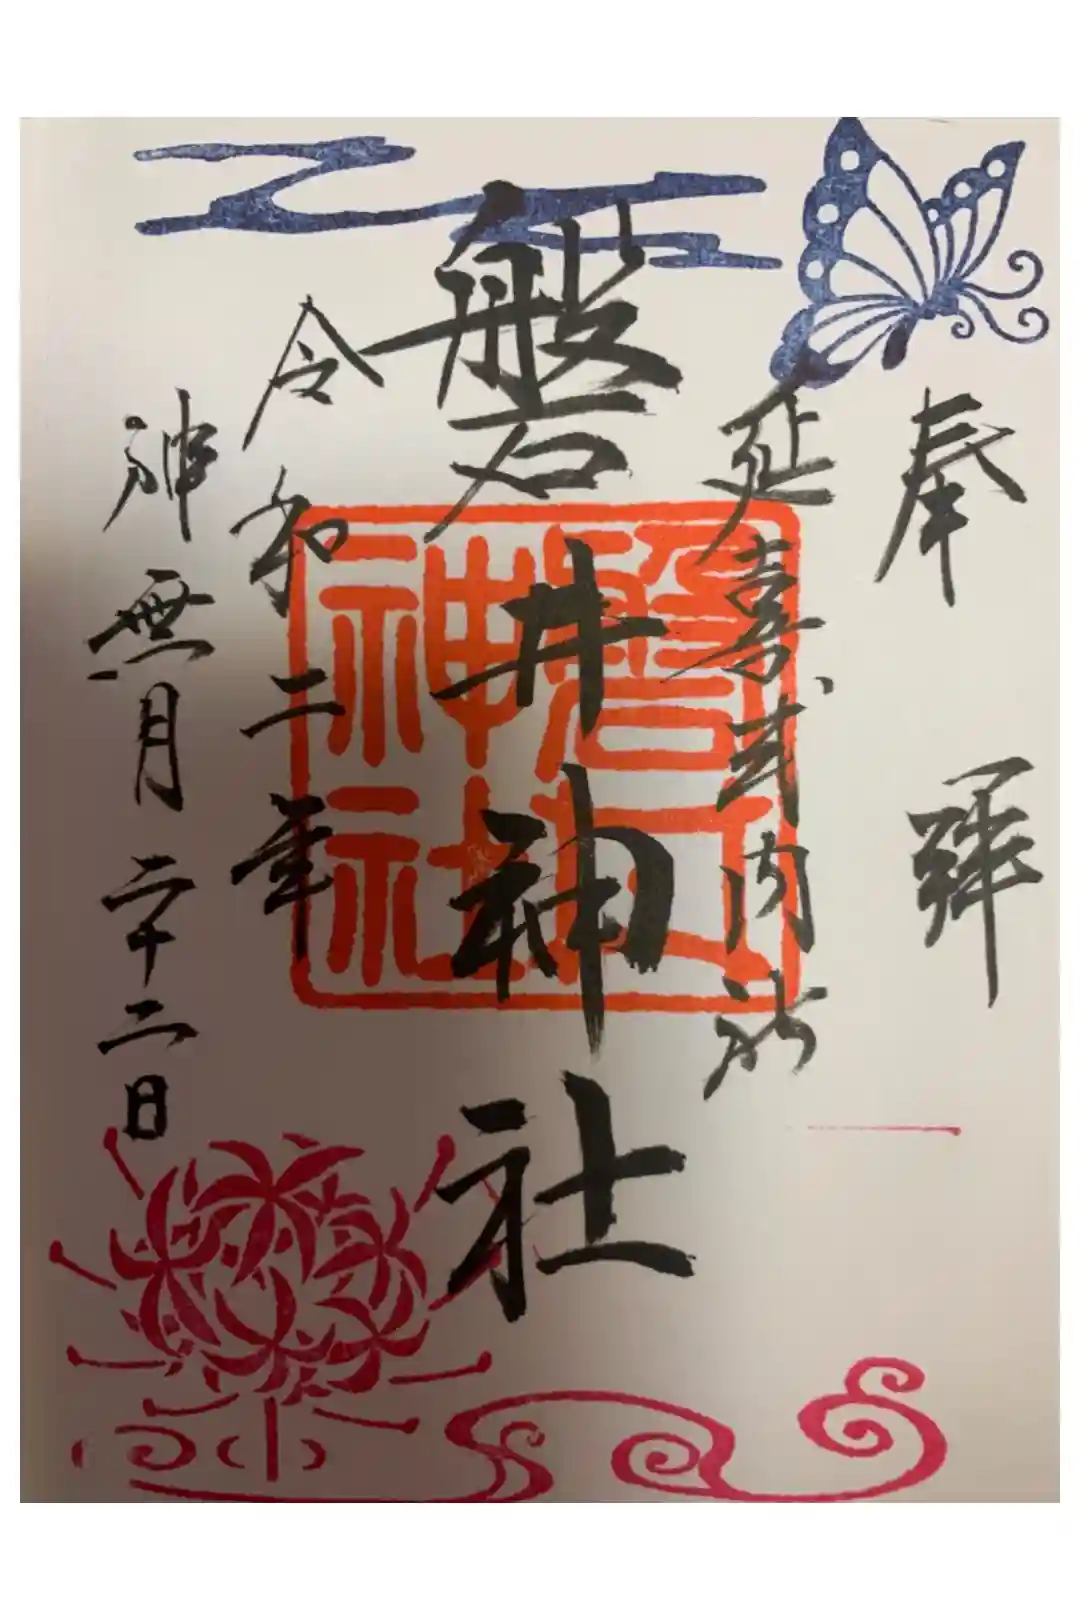 奉拝
延喜式内社
磐井神社
磐井
神社
令和二年
神無月二十二日